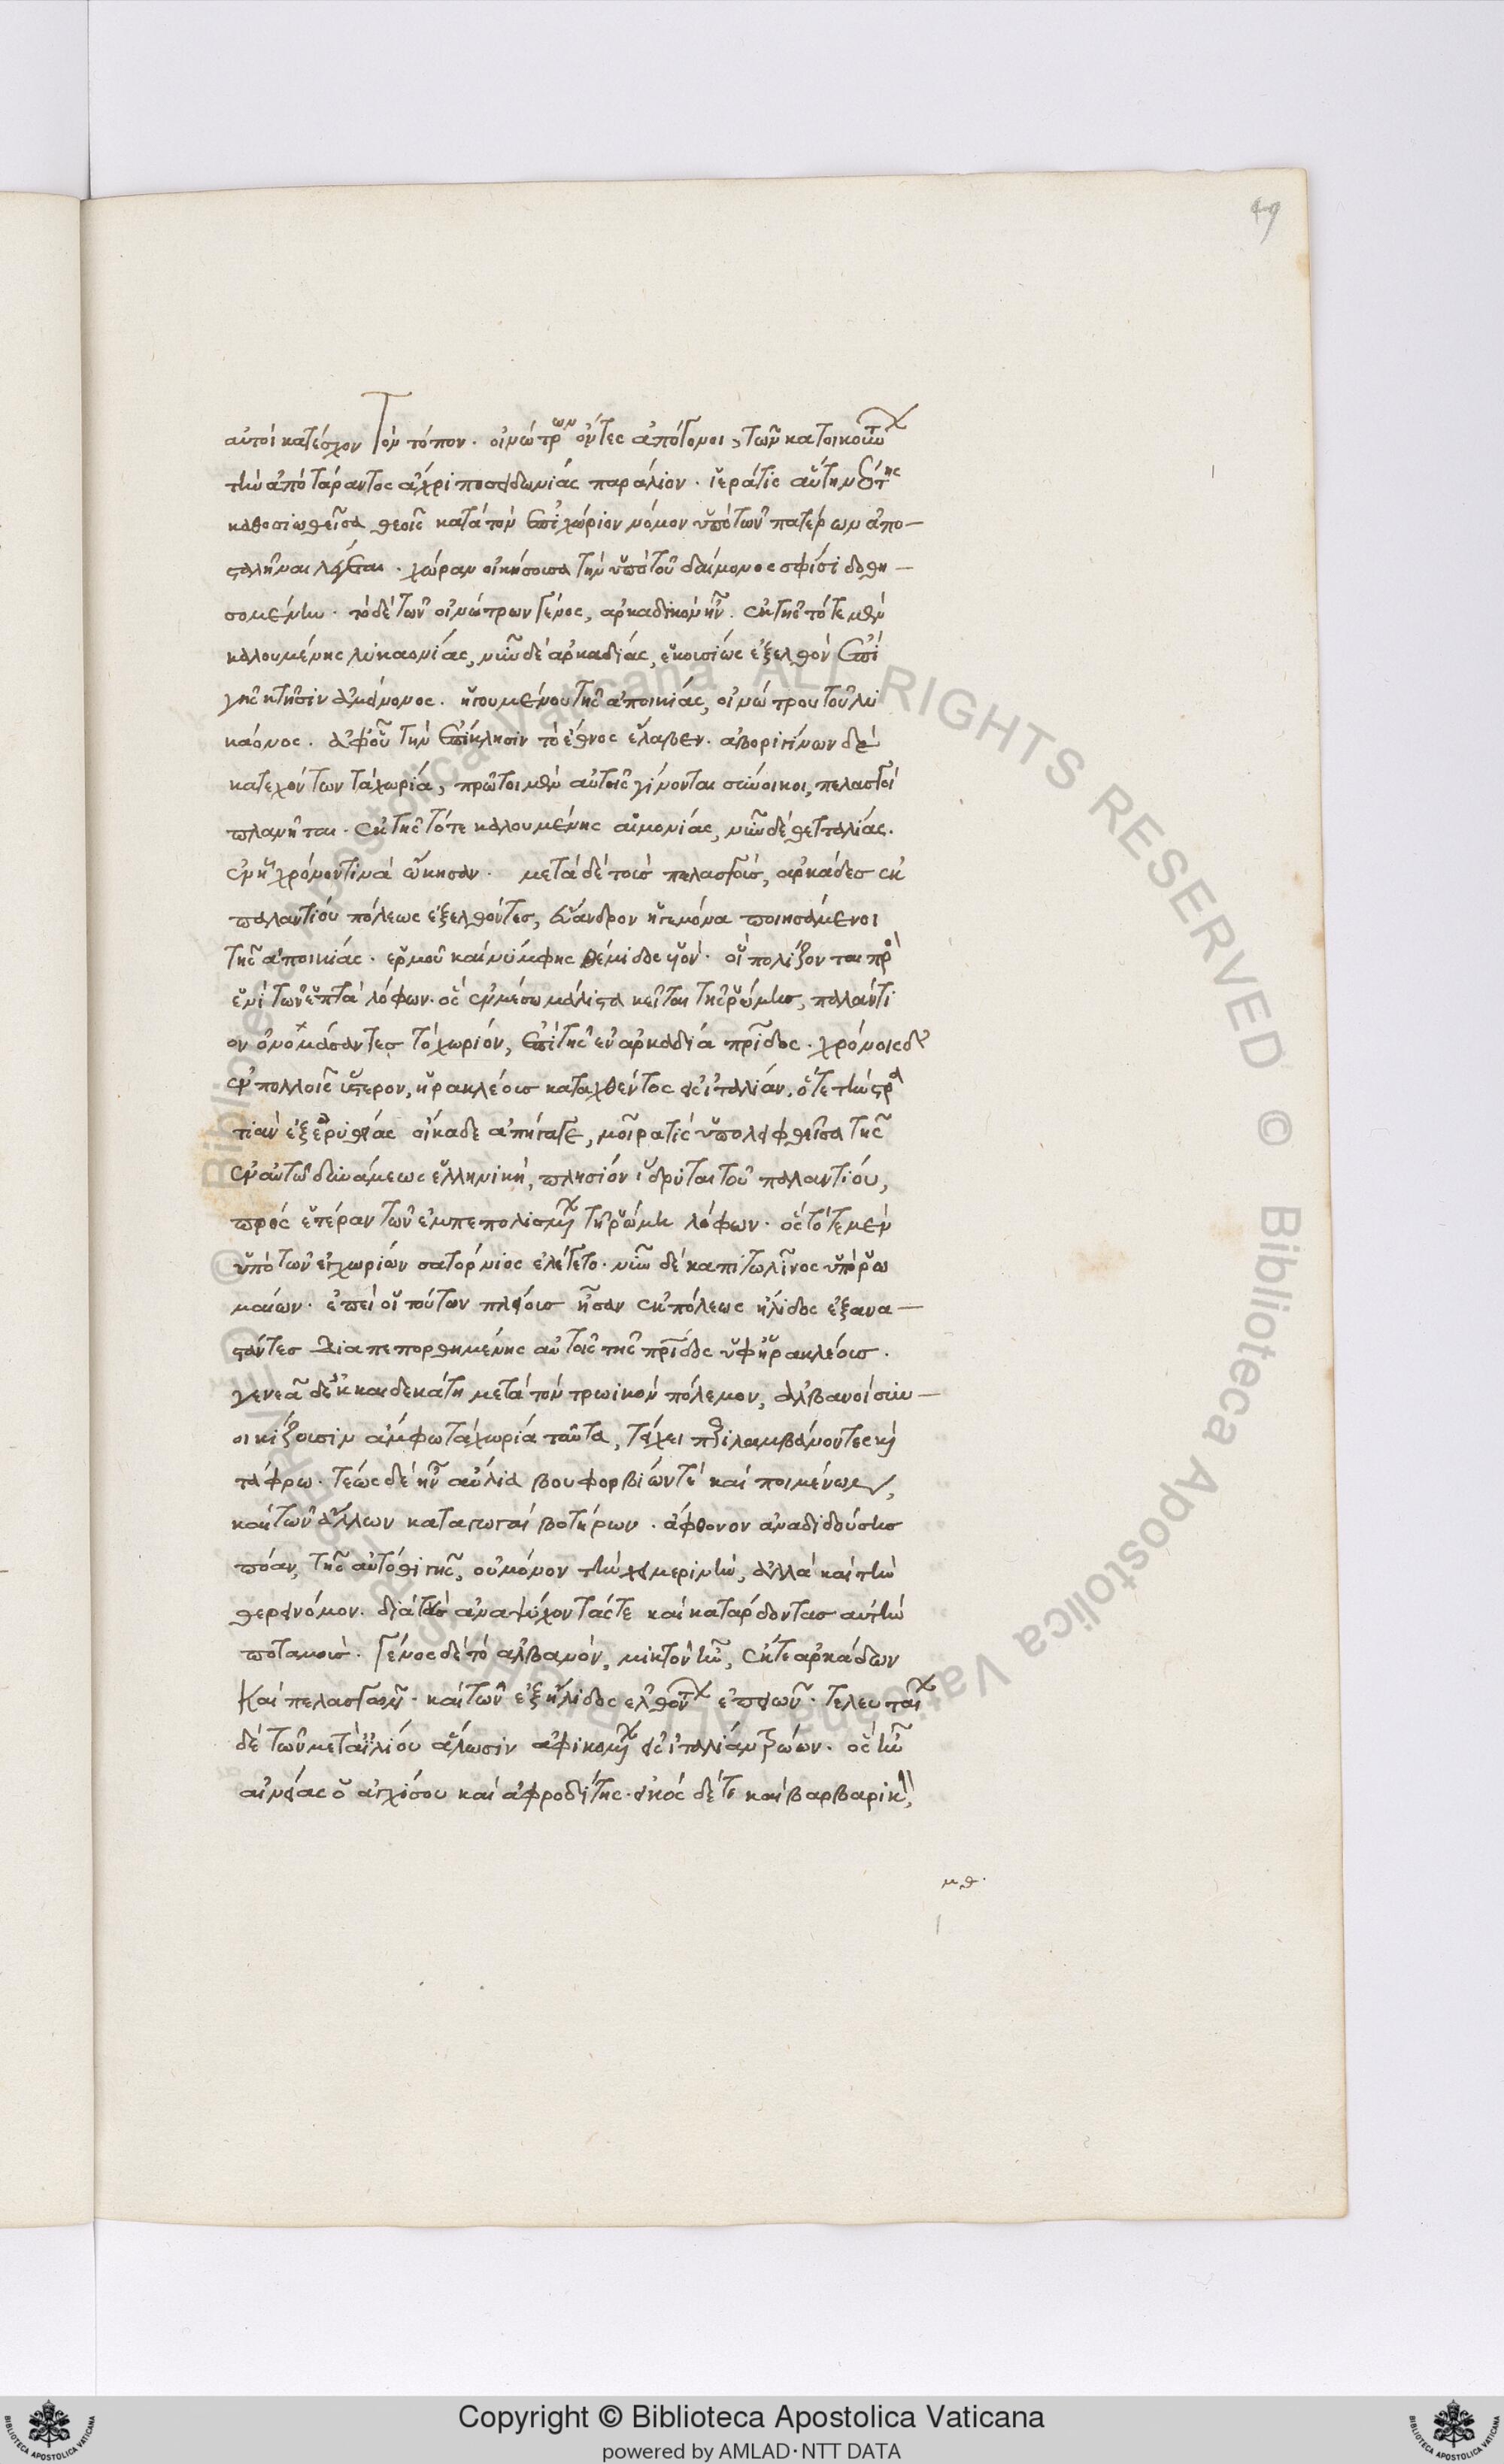 49
αὐτοὶ κατέσχον τὸν τόπον. οἰνώτρων ὄντες ἀπόγονοι, τῶν κατοικούντων
τὴν ἀπὸ τάραντος ἄχρι ποσειδωνίας παράλιον. ἱερά τις αὕτη νεότης
καθοσιωθεῖσα θεοῖς κατὰ τὸν ἐπιχώριον νόμον ὑπὸ τῶν πατέρων ἀπο-
σταλῆναι λέγεται. χώραν οἰκήσουσα τὴν ὑπὸ τοῦ δαίμονος σφίσι δοθη-
σομένην. τὸ δὲ τῶν οἰνώτρων γένος, ἀρκαδικὸν ἦν. ἐκ τῆς τότε μὲν
καλουμένης λυκαονίας, νῦν δὲ ἀρκαδίας, ἑκουσίως ἐξελθὸν ἐπὶ
γῆς κτῆσιν ἀμείνονος. ἡγουμένου τῆς ἀποικίας, οἰνώτρου τοῦ λυ
κάονος. ἀφ' οὗ τὴν ἐπίκλησιν τὸ ἔθνος ἔλαβεν. ἀβοριγίνων δὲ
κατεχόντων τὰ χωρία, πρῶτοι μὲν αὐτοῖς γίνονται σύνοικοι, πελασγοὶ
πλανῆται. ἐκ τῆς τότε καλουμένης αἱμονίας, νῦν δὲ θετταλίας.
ἐν ᾗ χρόνον τινὰ ᾤκησαν. μετὰ δὲ τοὺς πελασγούς, ἀρκάδες ἐκ
παλαντίου πόλεως ἐξελθόντες, εὔανδρον ἡγεμόνα ποιησάμενοι
τῆς ἀποικίας. ἑρμοῦ καὶ νύμφης θέμιδος υἱόν. οἳ πολίζονται πρὸς
ἑνὶ τῶν ἑπτὰ λόφων. ὃς ἐν μέσῳ μάλιστα κεῖται τῆς ῥώμης, παλάντι
ον ὀνομάσαντες τὸ χωρίον, ἐπὶ τῆς ἐν ἀρκαδίᾳ πατρίδος. χρόνοις δ'
οὐ πολλοῖς ὕστερον, ἡρακλέους καταχθέντος εἰς ἰταλίαν. ὅτε τὴν στρα
τιὰν ἐξ ἐρυθείας οἴκαδε ἀπήγαγε, μοῖρά τις ὑπολειφθεῖσα τῆς
σὺν αὐτῷ δυνάμεως ἑλληνική, πλησίον ἱδρύται τοῦ παλαντίου,
πρὸς ἑτέραν τῶν ἐμπεπολισμένων τῇ ῥώμη λόφων. ὃς τότε μὲν
ὑπὸ τῶν ἐγχωρίων σατόρνιος ἐλέγετο. νῦν δὲ καπιτωλῖνος ὑπὸ ῥω
μαίων. ἐπειοὶ τούτων πλείους ἦσαν ἐκ πόλεως ἤλιδος ἐξανα-
στάντες διαπεπορθημένης αὐτοῖς τῆς πατρίδος ὑφ' ἡρακλέους.
γενεᾷ δὲ ἑκκαιδεκάτῃ μετὰ τὸν τρωικὸν πόλεμον, ἀλβανοὶ συν-
οικίζουσιν ἄμφω τὰ χωρία ταῦτα, τείχει περιλαμβάνοντες καὶ
τάφρῳ. τέως δὲ ἦν αὔλια βουφορβίων τε καὶ ποιμένων,
καὶ τῶν ἄλλων καταγωγαὶ βοτήρων. ἄφθονον ἀναδιδούσης
πόαν, τῆς αὐτόθι γῆς, οὐ μόνον τὴν χειμερινὴν, ἀλλὰ καὶ τὴν
θερεινόμον. διὰ τοὺς ἀναψύχοντάς τε καὶ κατάρδοντας αὐτὴν
ποταμούς. γένος δὲ τὸ ἀλβανόν, μικτὸν ἦν, ἔκ τε ἀρκάδων
καὶ πελασγῶν. καὶ τῶν ἐξ ἤλιδος ἐλθόντων ἐπειῶν. τελευταίων
δὲ τῶν μετὰ ἰλίου ἅλωσιν ἀφικομένων εἰς ἰταλίαν τρώων. οὓς ἦγεν
αἰνείας ὁ ἀγχίσου καὶ ἀφροδίτης. εἰκὸς δέ τι καὶ βαρβαρικὸν,
μθ.
Copyright © Biblioteca Apostolica Vaticana
powered by AMLAD·NTT DATA
© Biblioteca Apostolica Vaticana ALL RIGHTS RESERVED © Biblioteca Apostolica Vaticana ALL RIGHTS RESERVED